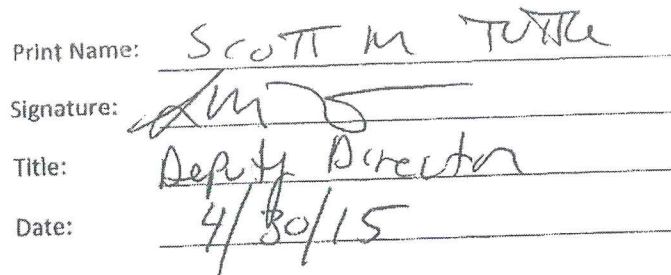 Print Name: Scott M Tuttle
Signature:
Title: Deputy Director
Date: 4/30/15